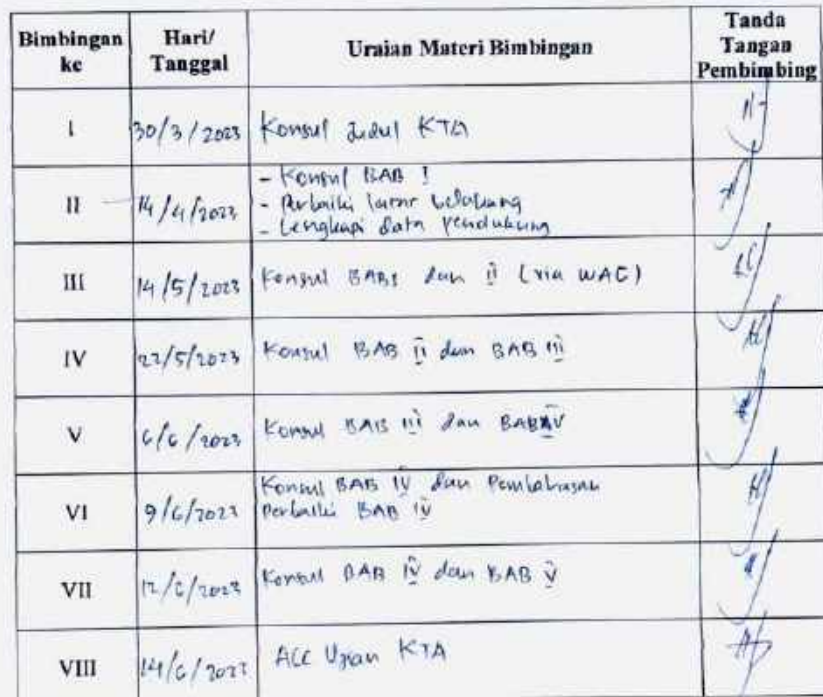 Bimbingan ke
Hari/ Tanggal
Uraian Materi Bimbingan
Tanda Tangan Pembimbing
I 30/3/2023 Konsul Judul KTA
II 14/4/2023 - Konsul BAB I
- Perbaiki latar belakang
- Lengkapi data pendukung
III 14/5/2023 Konsul BAB I dan II (via WAC)
IV 22/5/2023 Konsul BAB II dan BAB III
V 6/6/2023 Konsul BAB III dan BAB IV
VI 9/6/2023 Konsul BAB IV dan Pembahasan
Perbaiki BAB IV
VII 12/6/2023 Konsul BAB IV dan BAB V
VIII 14/6/2023 ACC Ujian KTA